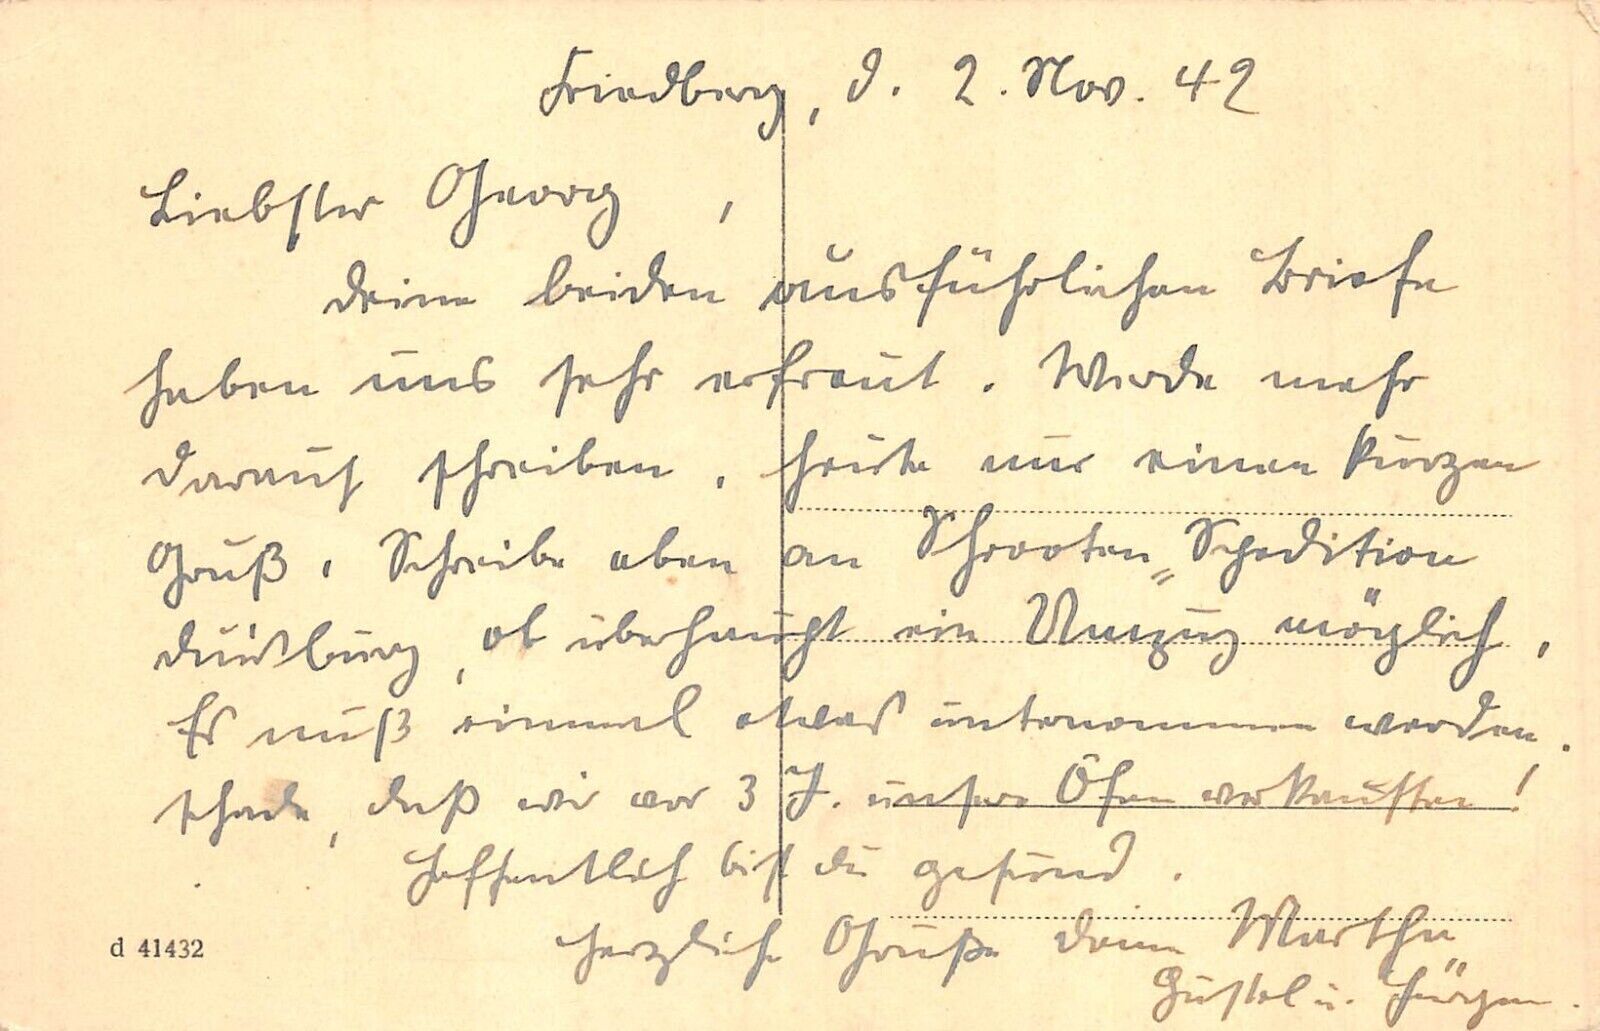 Friedberg, d. 2. Nov. 42
Liebster Georg,
deine beiden ausführlichen Briefe
haben uns sehr erfreut. Werde mehr
darauf schreiben. Heute nur einen kurzen
Gruß. Schreibe eben an Schrooten-Spedition
Duisburg, ob überhaupt ein Umzug möglich.
Es muß einmal etwas unternommen werden.
Schade, daß wir vor 3 J. unsere Öfen verkauften!
Hoffentlich bist du gesund.
Herzliche Grüße deine Martha
Gustel u. Jürgen.
d 41432